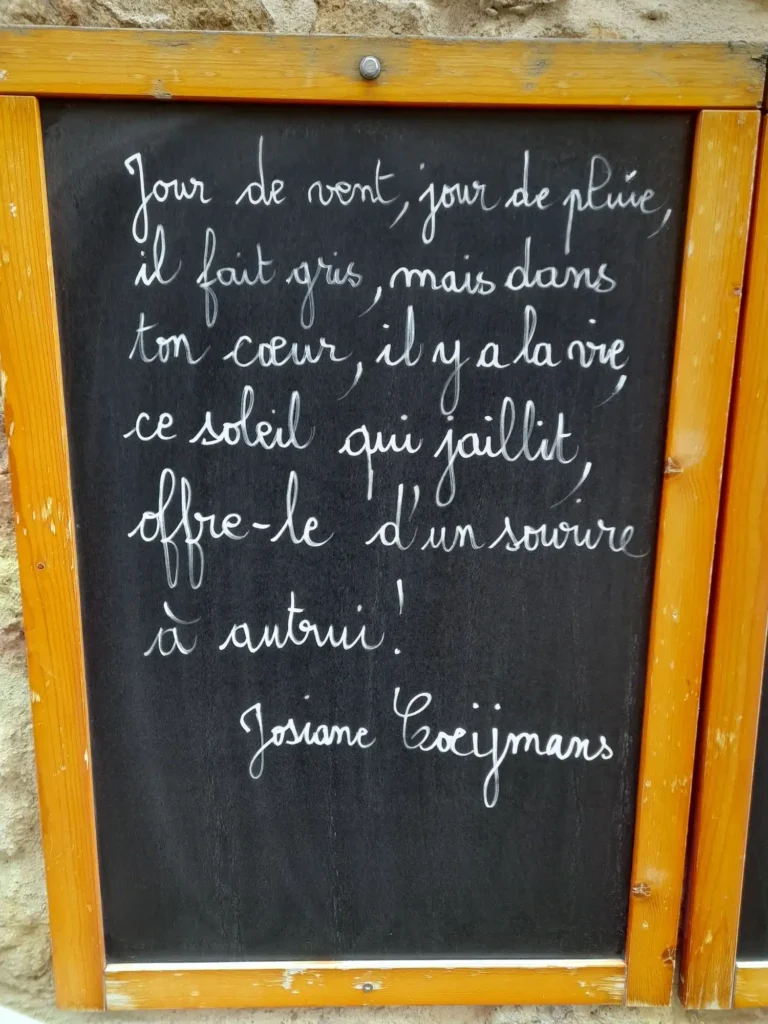 Jour de vent, jour de pluie,
il fait gris, mais dans
ton cœur, il y a la vie,
ce soleil qui jaillit,
offre-le d'un sourire
à autrui !
Josiane Coeijmans